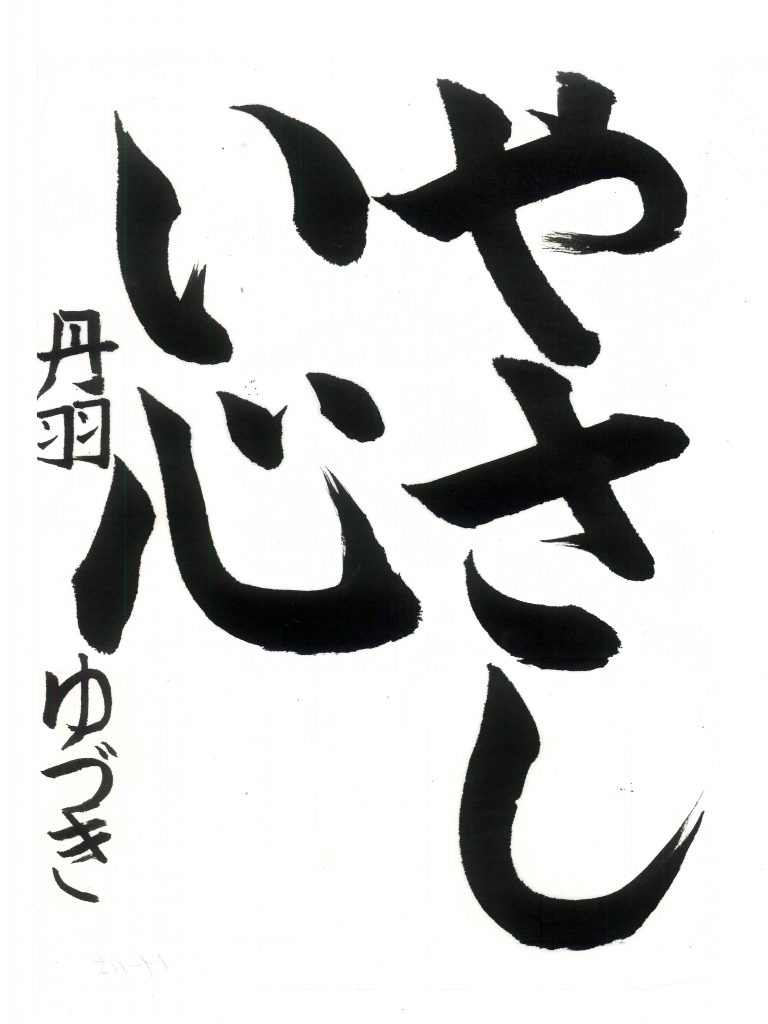 やさし
い心
丹羽 ゆづき